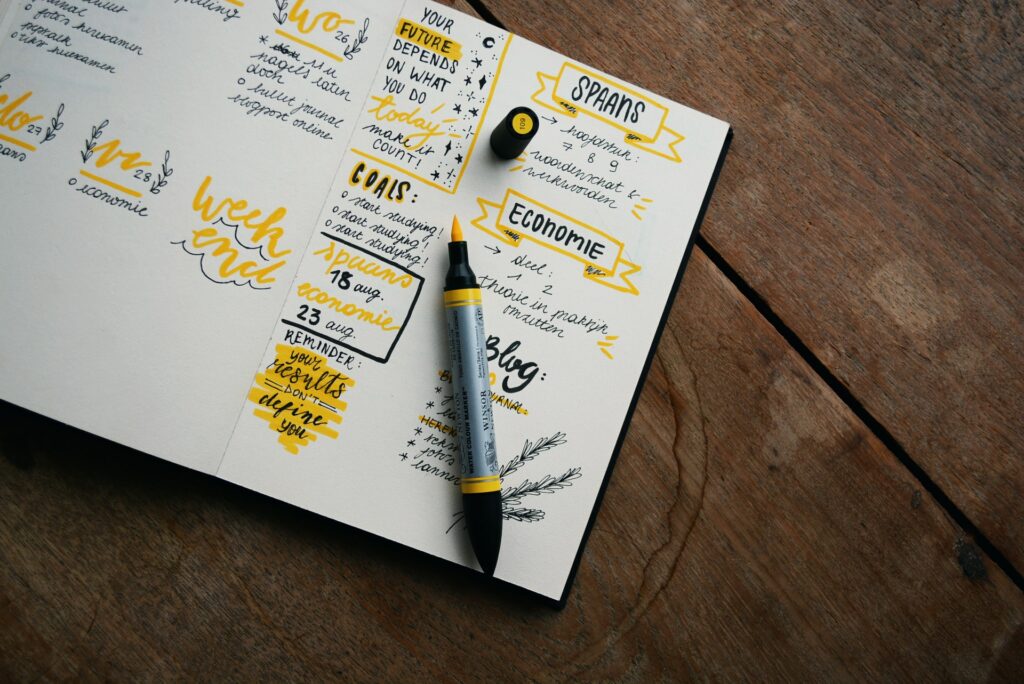 journal
herexamen
o herexamen
wo 26
nagels laten
doen
o bullet journal
blogpost online
do 27
vr 28
o economie
week
end
YOUR
FUTURE
DEPENDS
ON WHAT
YOU DO
today
make it
COUNT!
GOALS:
o start studying!
o start studying!
o start studying!
spaans
18 aug.
economie
23 aug.
REMINDER:
your
results
DON'T
define
you
SPAANS
→ hoofdstuk:
7 8 9
woordenschat &
werkwoorden
ECONOMIE
→ deel:
1 2
theorie in praktijk
omzetten
Blog:
JOURNAL:
HEREX
* foto's
* banner
109
WINSOR
WATER COLOUR MARKER